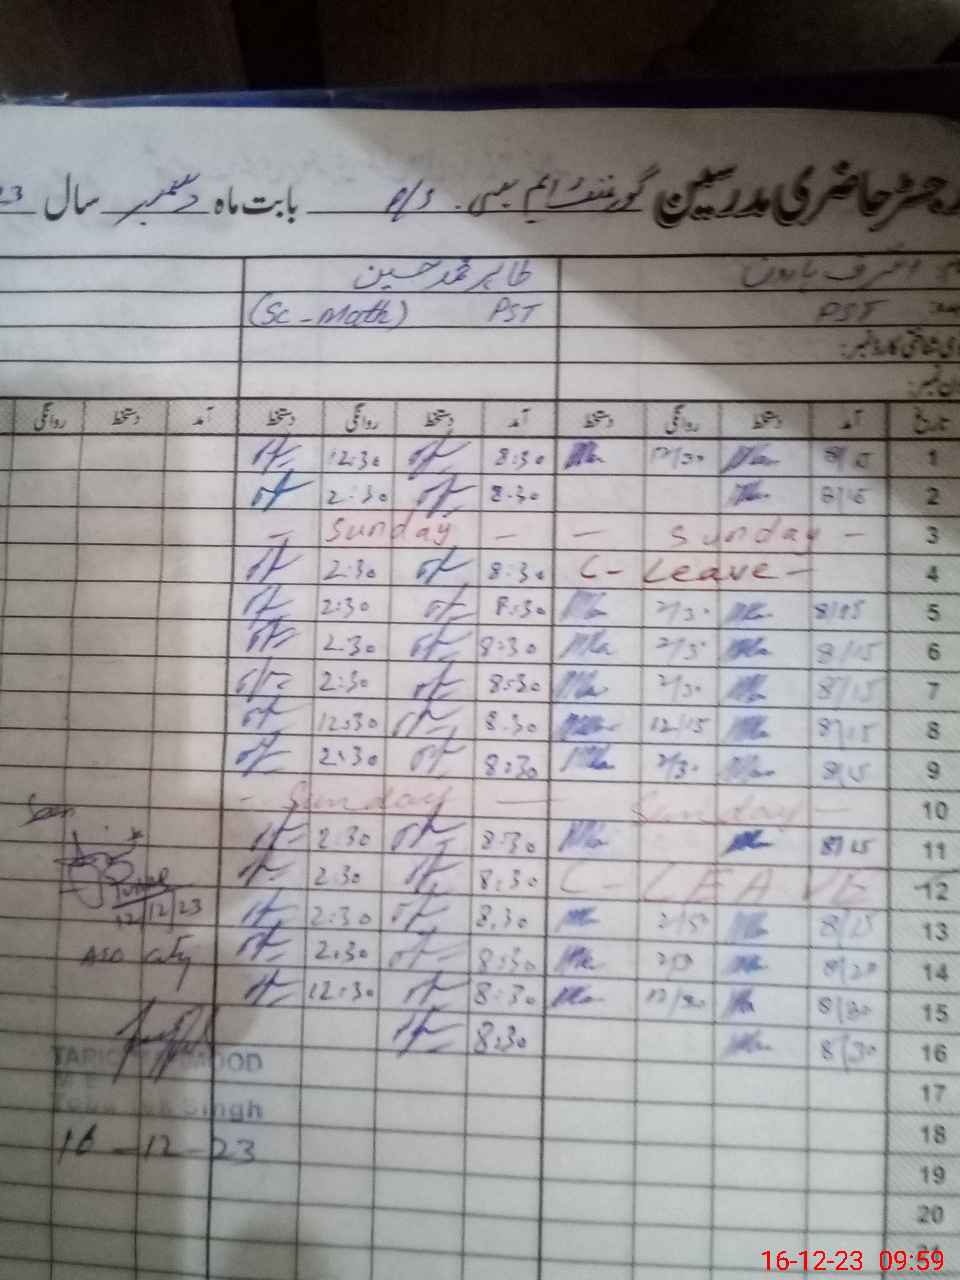 رجسٹر حاضری مدرسین گورنمنٹ ایم سی P/S بابت ماہ دسمبر سال 23
طاہر محمد حسین
PST PST (Sc-Math)
شناختی کارڈ نمبر:
نمبر:
تاریخ آمد دستخط روانگی دستخط آمد دستخط روانگی دستخط آمد دستخط روانگی
1 8/15 12/30 8:30 12:30
2 8/15 8:30 2:30
3 - Sunday - - Sunday -
4 C-Leave- 8:30 2:30
5 8/15 2/30 8:30 2:30
6 8/15 2/30 8:30 2:30
7 8/15 2/30 8:30 2:30
8 8/15 12/15 8:30 12:30
9 8/15 2/30 8:30 2:30
10 Sunday - - Sunday -
11 8/15 8:30 2:30
12 C-LEAVE 8:30 2:30
13 8/15 8:30 2:30
14 8/20 8:30 2:30
15 8/30 12/30 8:30 12:30
16 8/30 8:30
17
18
19
20
21
12/12/23
ASO city
TARIQ MEHMOOD
Singh
16-12-23
16-12-23 09:59